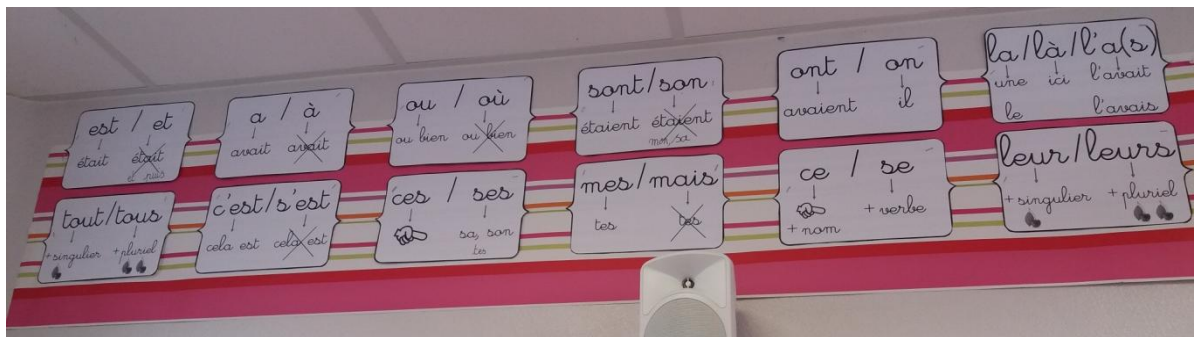 est / et
était était
et puis
a / à
avait avait
ou / où
ou bien ou bien
sont/son
étaient étaient
mon/sa
ont / on
avaient il
la/là/l'a(s)
une ici l'avait
le l'avais
tout/tous
+singulier +pluriel
c'est/s'est
cela est cela est
ces / ses
sa, son
tes
mes/mais
tes tes
ce / se
+ verbe
+ nom
leur/leurs
+ singulier + pluriel